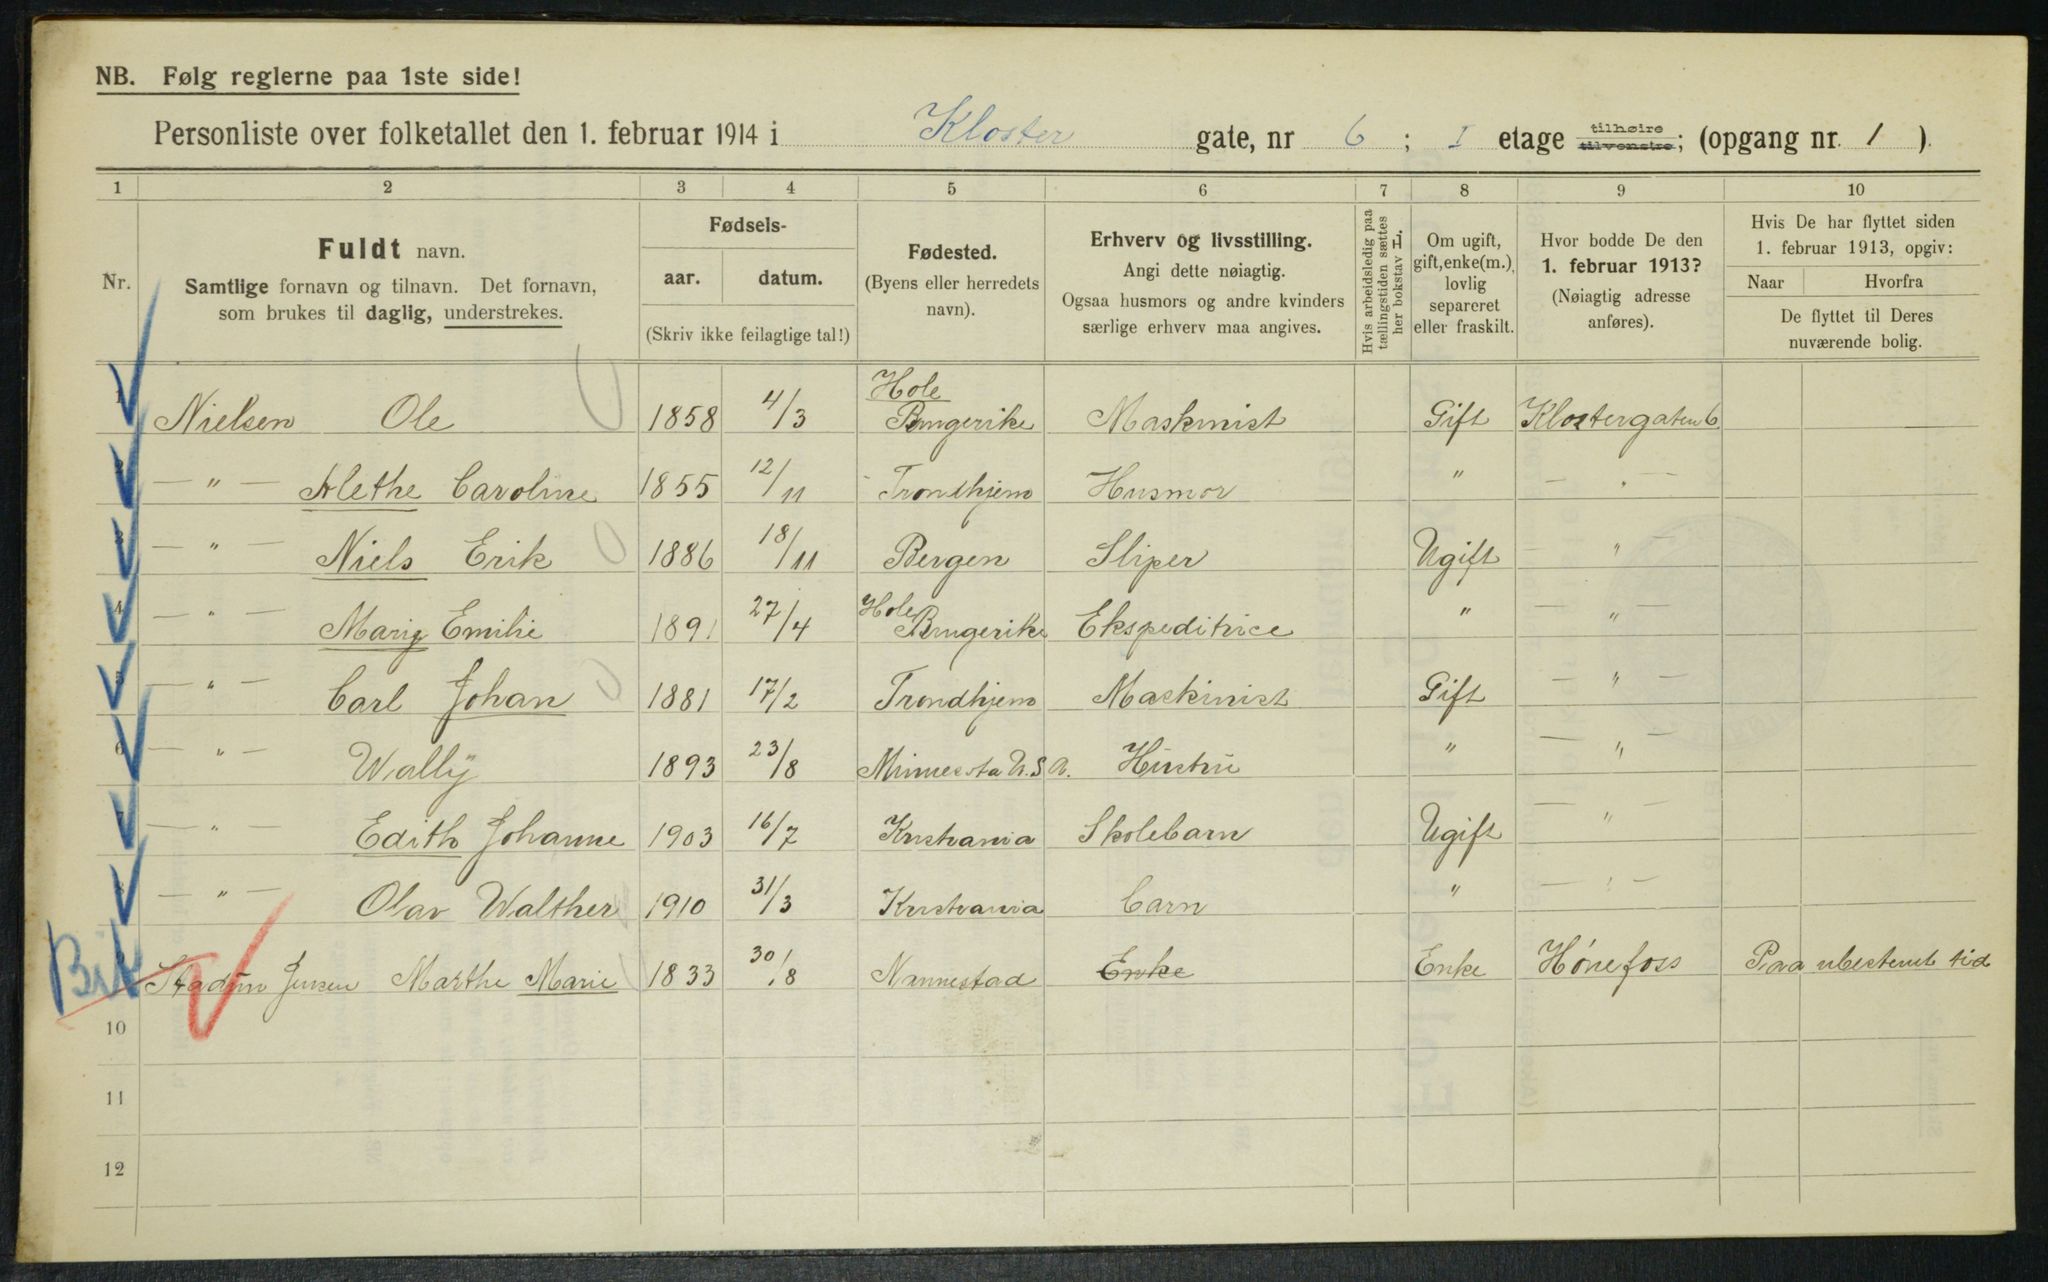 NB. Følg reglerne paa 1ste side!
Personliste over folketallet den 1. februar 1914 i Kloster gate, nr 6 ; I etage tilhøire tilvenstre; (opgang nr. 1 ).
1 2 3 4 5 6 7 8 9 10
Nr.
Fuldt navn.
Samtlige fornavn og tilnavn. Det fornavn,
som brukes til daglig, understrekes.
Fødsels-
aar. datum.
(Skriv ikke feilagtige tal!)
Fødested.
(Byens eller herredets
navn).
Erhverv og livsstilling.
Angi dette nøiagtig.
Ogsaa husmors og andre kvinders
særlige erhverv maa angives.
Hvis arbeidsledig paa
tællingstiden sættes
her bokstav L.
Om ugift,
gift, enke(m.),
lovlig
separeret
eller fraskilt.
Hvor bodde De den
1. februar 1913?
(Nøiagtig adresse
anføres).
Hvis De har flyttet siden
1. februar 1913, opgiv:
Naar Hvorfra
De flyttet til Deres
nuværende bolig.
Hole
1 Nielsen Ole 1858 4/3 Maskinist Gift Klostergaten 6
2 — " — Alethe Caroline 1855 12/11 Trondhjem Husmor " — " —
3 — " — Niels Erik 1886 18/11 Bergen Sliper Ugift — " —
4 — " — Marie Emilie 1891 27/4 Hole Ekspeditrice " — " —
5 — " — Carl Johan 1881 17/2 Trondhjem Maskinist Gift — " —
6 — " — Wally 1893 23/8 Minnesota U.S.A. Hustru " — " —
7 — " — Edith Johanne 1903 16/7 Kristiania Skolebarn Ugift — " —
8 — " — Olav Walther 1910 31/3 Kristiania barn " — " —
9 Jensen Marthe Marie 1833 30/8 Nannestad Enke Enke Hønefoss Paa ubestemt tid
10
11
12